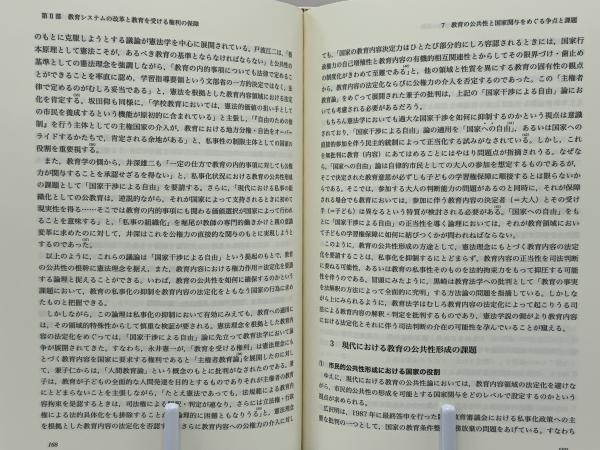 第Ⅱ部 教育システムの改革と教育を受ける権利の保障
のもとに克服しようとする議論が憲法学を中心に展開されている。戸波江二は、「根
本原理として憲法こそが、あるべき教育の基準とならなければならない」と公共性の
基準としての憲法を強調しながら、「教育の内的事項についても法律で定めるこ
とができることを率直に認め、学習指導要領という文部省の一方的決定ではなく、法
律で定めるのがむしろ妥当である」と、憲法を根拠とした教育内容領域における法定
化を肯定する。坂田仰も同様に、「学校教育においては、憲法的価値の担い手として
の市民を養成するという機能が原初的に含まれている」と主張し、「『自由のための強
制』を行う主体としての主権国家の介入が、教育における地方分権・自治をオーバー
ライドするかたちで、肯定される余地がある」と、私事性の制限主体としての国家の
役割を重要視する。
また、教育学の側から、井深雄二も「一定の仕方で教育の内的事項に対しても公権
力が関与することを承認せざるを得ない」と、私事化状況における教育の公共性形成
の課題として「国家干渉による自由」を要請する。さらに、「現代における私事の組
織化としての公教育は、逆説的ながら、それが国家によって支持されるときに初めて
現実性を得る……そこでは教育の内的事項にも関わる価値選択が国家によって行われ
ることを意味する」と、「私事の組織化」を堀尾が教師の専門的働きかけと親の意識
変革に求めたのに対して、井深はこれを公権力の直接的な関与のもとに実現しようと
するのであった。
以上のように、これらの議論は「国家干渉による自由」という提起のもとで、教育
の公共性の根幹に憲法理念を据え、また、教育内容における権力作用=法定化を要請
する論理と捉えることができる。いわば、教育の公共性を如何に確保するのかという
課題において、教育の私事化の抑制を教育内容の法定化をともなう国家の行為に求め
たものと把握できる。
しかしながら、この論理は私事化の抑制において有効にみえても、教育への適用に
は、その領域的特殊性からして慎重な検証が要される。憲法理念を根拠とした教育内
容の法定化をめぐっては、「国家干渉による自由」論に先立って教育法学において論
争が展開されてきた。すなわち、永井憲一が、「教育を受ける権利」は憲法理念にも
とづく教育内容を国家に要求する権利であると「主権者教育権論」を展開したのに対し
て、兼子仁からは、「人間教育論」という概念のもとに批判がなされたのである。兼
子は、教育が子どもの全面的な人間発達を目的とするものでありそれが主権者の教育
にとどまらないことを主張しながら、「たとえ憲法であっても、法規範による教育内
容拘束を是認するときは、司法権による解釈・判定が通なり、さらには立法権・行政
権による法的具体化をも排除することが論理的に困難ともなりうる」と、憲法理念
を根拠とした教育内容の法定化を否認する。さらに教育内容への公権力の介入に対し
168
7 教育の公共性と国家関与をめぐる争点と課題
ても、「国家の教育内容決定力はひとたび部分的にしろ容認されるときには、国家行
政権力の自己増殖性と教育内容の有機的相互関連性とからしてその限界づけ・歯止め
の制度化がきわめて至難である」と、他の領域と性質を異にする教育の固有性の観点
から、教育内容の法定化ならびに公権力の介入を否定するのであった。この「主権者
教育論」をめぐって展開された兼子の批判は、上記の「国家干渉による自由」論にお
いても考慮される必要があるだろう。
もちろん憲法学においても過大な国家干渉を如何に抑制するのかという視点は意識
されており、「国家干渉による自由」論の適用を「国家への自由」、あるいは国家への
直接的参加を伴う民主的統制によって正当化する試みがなされている。しかし、これ
を如何に教育(内容)にあてはめることにはやはり問題点が指摘されうる。なぜな
ら、「国家への自由」論は自律的市民としての大人の参加を想定するものであるが、
そこで決定された教育意思が必ずしも子どもの学習権保障に順接するとは限らないか
らである。そこでは、参加する大人の判断能力の問題があるのと同時に、それが保障
される場合でも教育においては、参加に伴う教育内容の決定者(=大人)とその受け
手(=子ども)は異なるという特質が検討される必要がある。「国家への自由」をも
とに「国家干渉による自由」の正当性を導く論理においては、それが教育領域におい
て子どもの学習権保障に如何に結びつくかが問われねばならない。
このように、教育の公共性形成の方途として、憲法理念にもとづく教育内容の法定
化を要請することは、私事化を抑制するにとどまらず、教育内容の正当性を司法判断
に委ねる可能性、あるいは教育の私事性そのものを法的拘束力をもって抑圧する可能
性を伴うのである。冒頭にみたように、黒崎は教育法学への批判として「教育の事実
を法解釈の方法によって全面的に究明」する方法論の問題を指摘している。しかしな
がら上にみられるように、教育法学はむしろ教育内容の法定化によって起こりうる司
法による教育内容の解釈・判定を批判するものであり、憲法学説の側がより教育内容
における法定化とそれに伴う司法判断の介在の可能性を孕んでいることが窺える。
3 現代における教育の公共性形成の課題
(1) 市民的公共性形成における国家の役割
ゆえに、現代における教育の公共性論においては、教育内容領域の法定化を避けな
がら、市民的公共性の形成を可能とする国家関与をどのレベルで設定するのかという
視点が求められる。
広沢明は、1987年に最終答申を行った臨時教育審議会における私事化政策への主
要な批判の一つとして、国家の教育条件整備義務放棄の問題をあげている。すなわち